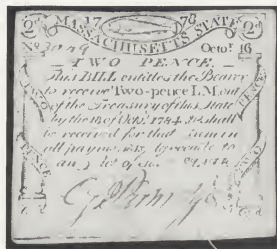 2d 17 78 2d
MASSACHUSETTS STATE
No 3049 Octor. 16
TWO PENCE.
This BILL entitles the Bearer
to receive Two-pence L.M. out
of the Treasury of this State
by the 18 Octr. 1784 & shall
be received for that Sum in
all payments, agreeable to
an Act of
TWO PENCE
PENCE